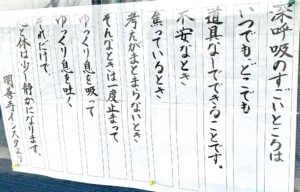 深呼吸のすごいところは
いつでも、どこでも
道具なしでできることです。
不安なとき
焦っているとき
考えがまとまらないとき
そんなときは一度止まって
ゆっくり息を吸って
ゆっくり息を吐く
それだけで、
心と体は少し静かになります。
明善寺インスタより